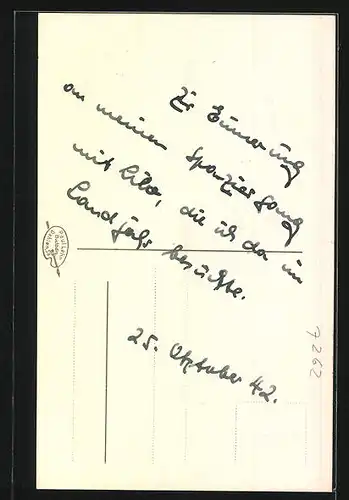 Zur Erinnerung
an meinen Spaziergang
mit Lilo, die ich da im
Landjahr besuchte.
25. Oktober 42.
7262